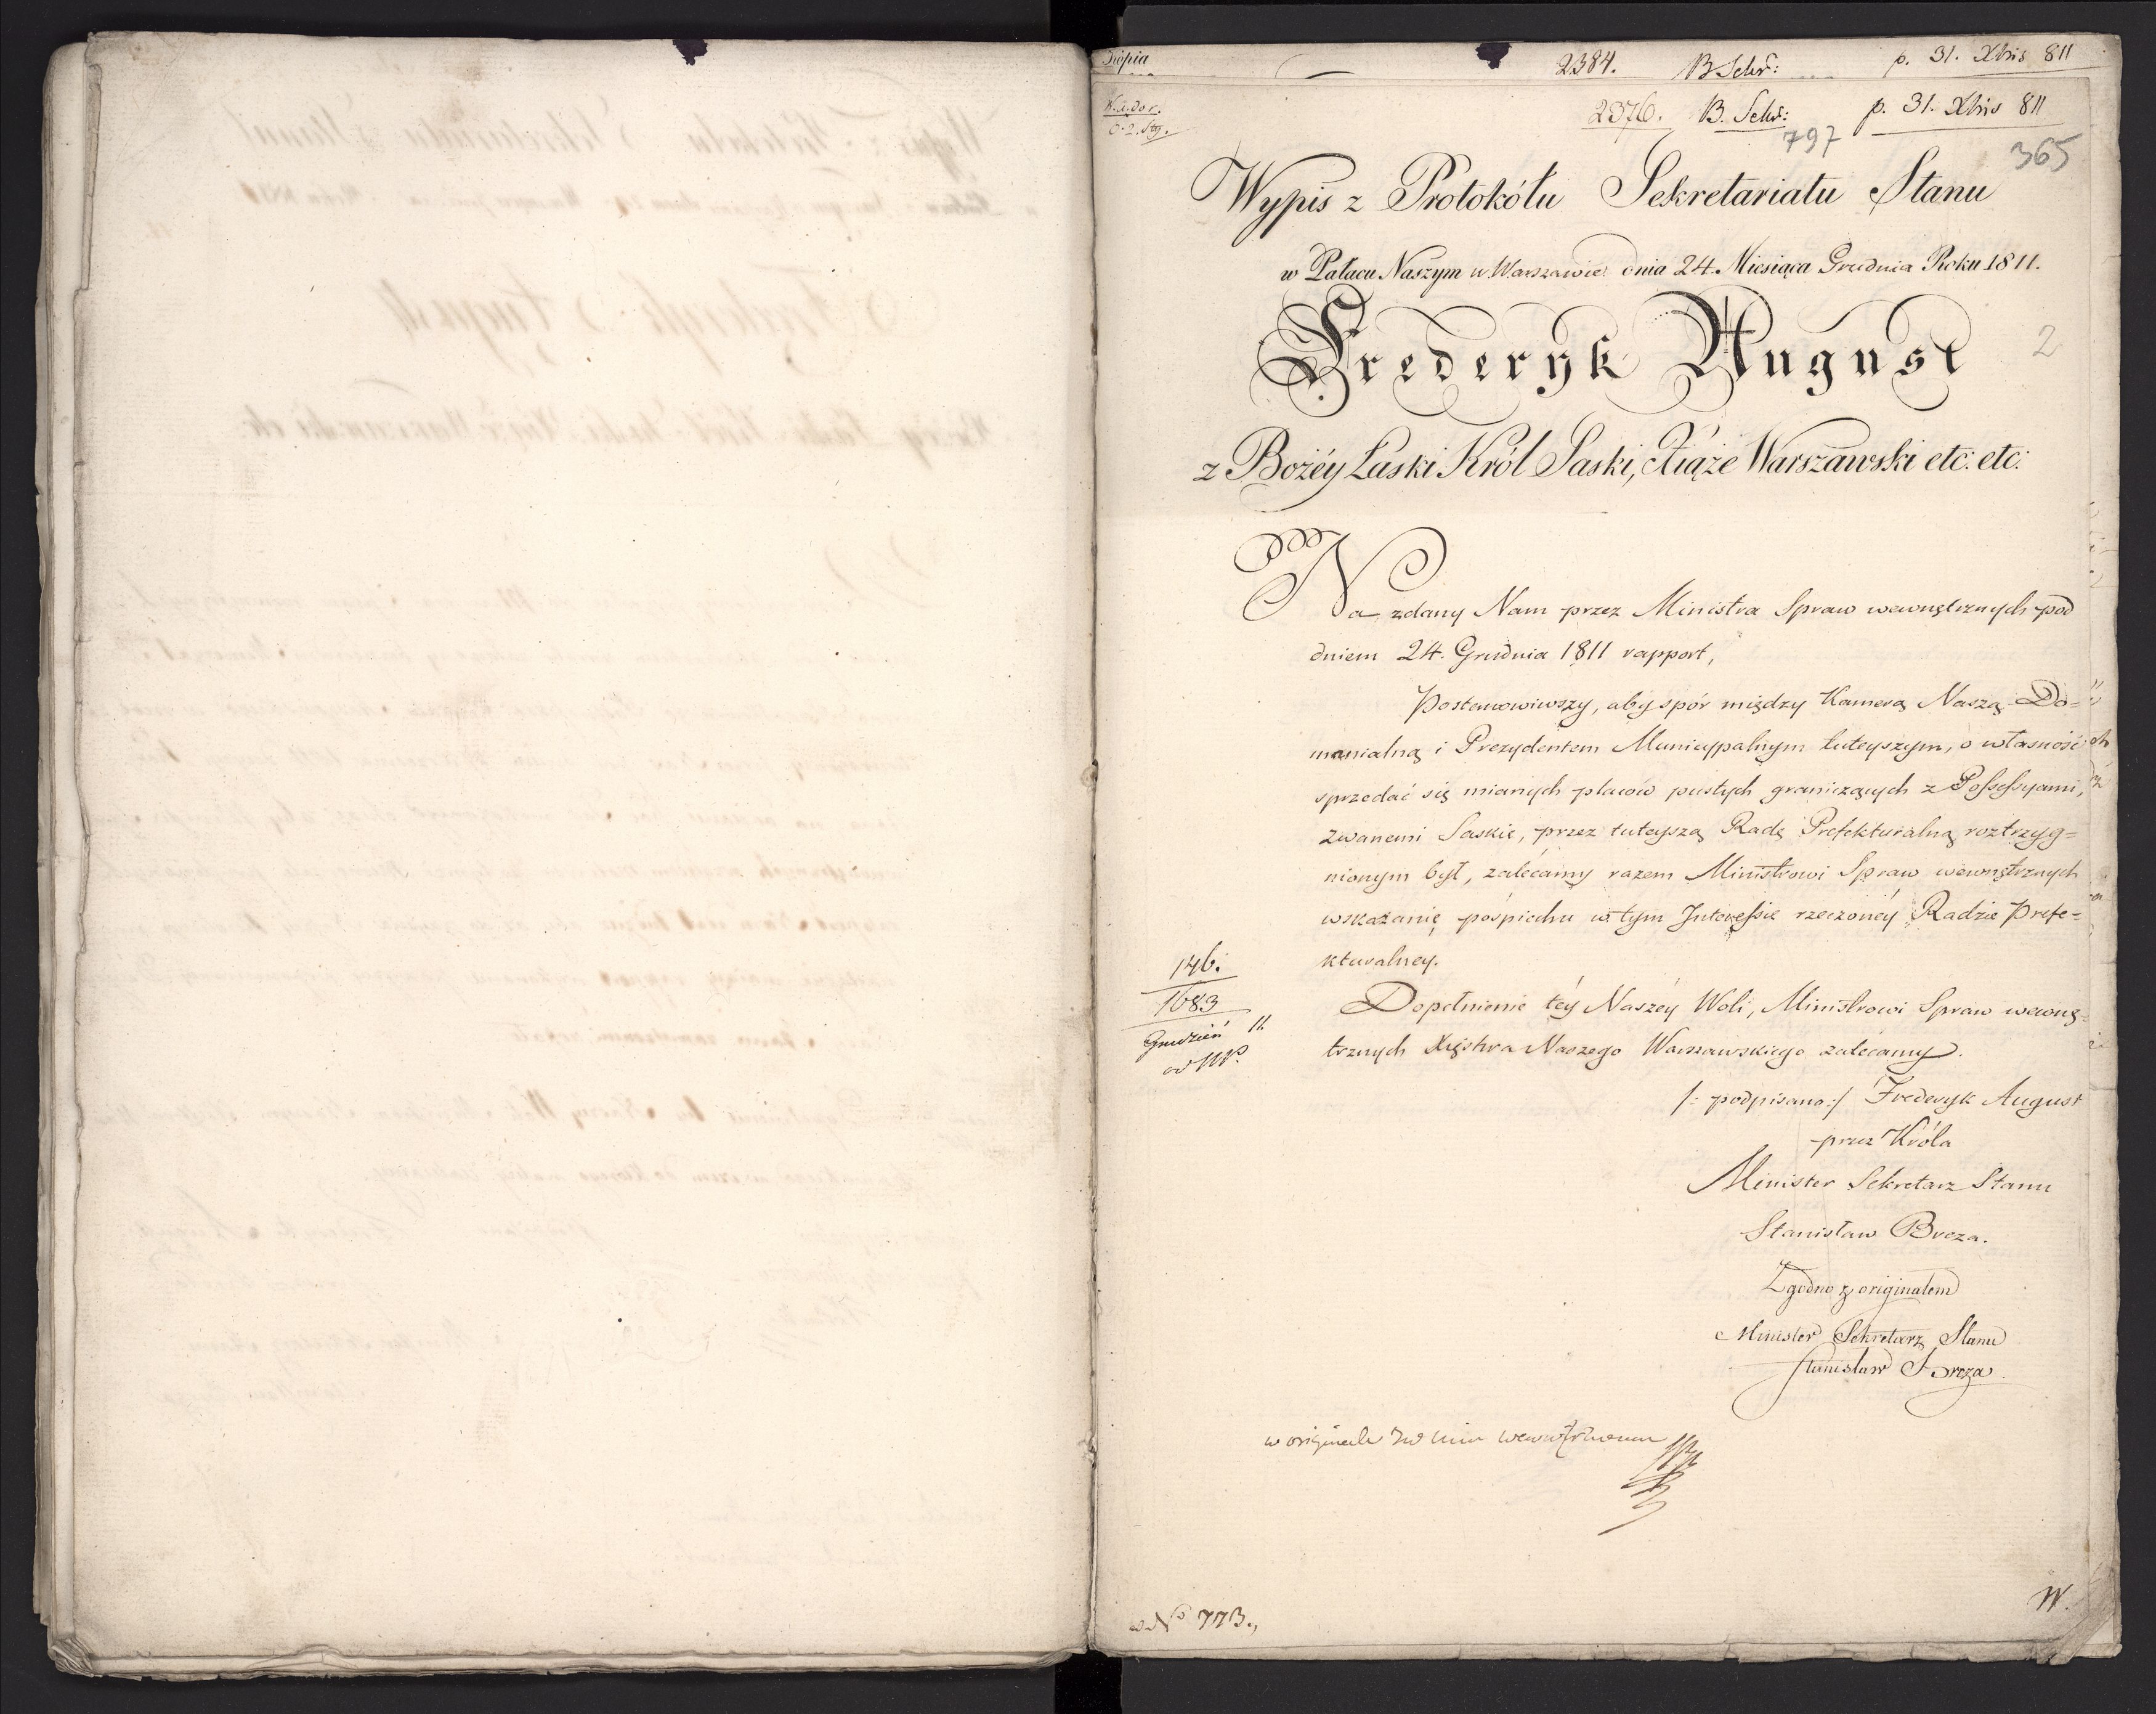 Kopia
2384. B Sekr: p. 31. Xbris 811
2376. B. Sekr: p. 31. Xbris 811
797
365
Wypis z Protokółu Sekretariatu Stanu
w Pałacu Naszym w Warszawie dnia 24. Miesiąca Grudnia Roku 1811.
Frederyk August
2
z Bożéy Łaski Król Saski, Xiąże Warszawski etc: etc:
Na zdany Nam przez Ministra Spraw wewnętrznych pod
dniem 24. Grudnia 1811 rapport,
Postanowiwszy, aby spór między Kamerą Naszą Do=
manialną i Prezydentem Municypalnym tuteyszym, o własność
sprzedać się mianych placów pustych graniczących z Possessyami,
zwanemi Saskie, przez tuteyszą Radę Prefekturalną roztrzyg=
nionym był, zalécamy razem Ministrowi Spraw wewnętrznych
wskazanie pośpiechu w tym Interessie rzeczonéy Radzie Prefe=
kturalney.
146.
1683
Grudzień 11.
Dopełnienie téy Naszéy Woli, Ministrowi Spraw wewnę=
trznych Xięstwa Naszego Warszawskiego zalécamy.
/: podpisano :/ Frederyk August
przez Króla
Minister Sekretarz Stanu
Stanisław Breza.
Zgodno z originałem
Minister Sekretarz Stanu
Stanisław Breza.
w originale
N° 773.,
W.